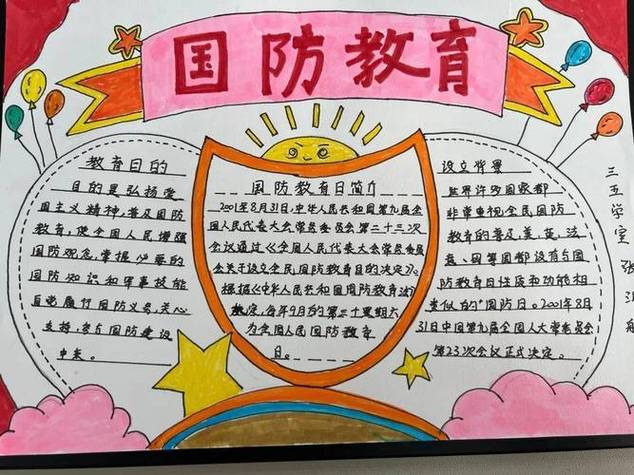 国防教育
教育日的
目的是弘扬爱
国主义精神,普及国防
教育,使全国人民增强
国防观念,掌握必要的
国防知识和军事技能
自觉履行国防义务,关心
支持,参与国防建设
中来。
国防教育日简介
2001年8月31日,中华人民共和国第九届全
国人民代表大会常务委员会第二十三次
会议通过《全国人民代表大会常务委员
会关于设立全民国防教育目的决定》。
根据《中华人民共和国国防教育法》
规定,每年9月的第三个星期六
为全国人民国防教育
日。
设立背景
世界许多国家都
非常重视全民国防
教育的普及,美、英、法
、国等国都设有与国
防教育日性质和功能相
类似的“国防日。2001年8月
31日中国第九届全国人大常委员会
第23次会议正式决定。
三五学室